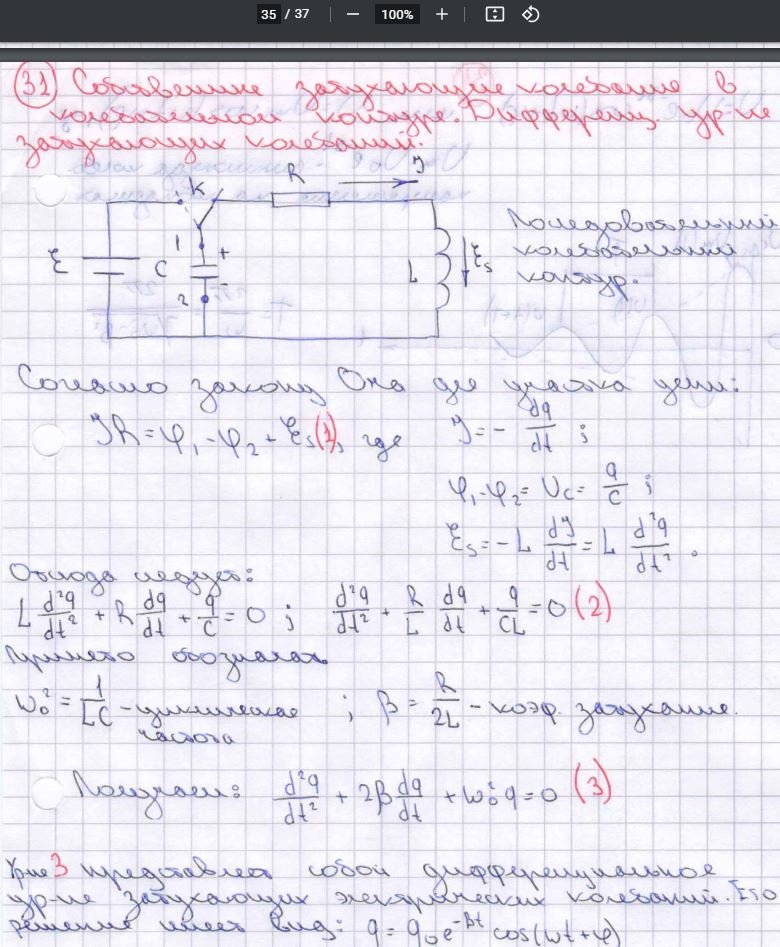 35 / 37
100%
31 Собственные затухающие колебания в
колебательном контуре. Дифференц. ур-ие
затухающих колебаний.
K R I
ℰ C 1 + - 2 L ℰs
Последовательный
колебательный
контур.
Согласно закону Ома для участка цепи:
IR = φ₁ - φ₂ + ℰs (1), где I = - dq/dt ;
φ₁ - φ₂ = Uc = q/C ;
ℰs = - L dI/dt = L d²q/dt² .
Отсюда следует:
L d²q/dt² + R dq/dt + q/C = 0 ; d²q/dt² + R/L dq/dt + q/CL = 0 (2)
Принято обознач.
ω₀² = 1/LC - циклическая частота ; β = R/2L - коэф. затухания.
Получаем: d²q/dt² + 2β dq/dt + ω₀² q = 0 (3)
Ур-ие 3 представляет собой дифференциальное
ур-ие затухающих электрических колебаний. Его
решение имеет вид: q = q₀e^(-βt) cos(ωt + φ)